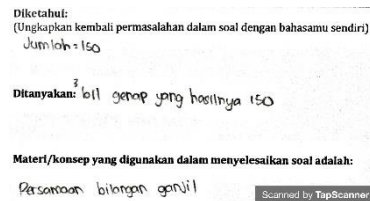 Diketahui:
(Ungkapkan kembali permasalahan dalam soal dengan bahasamu sendiri)
Jumlah = 150
Ditanyakan: 3 bil genap yang hasilnya 150
Materi/konsep yang digunakan dalam menyelesaikan soal adalah:
Persamaan bilangan ganjil
Scanned by TapScanner